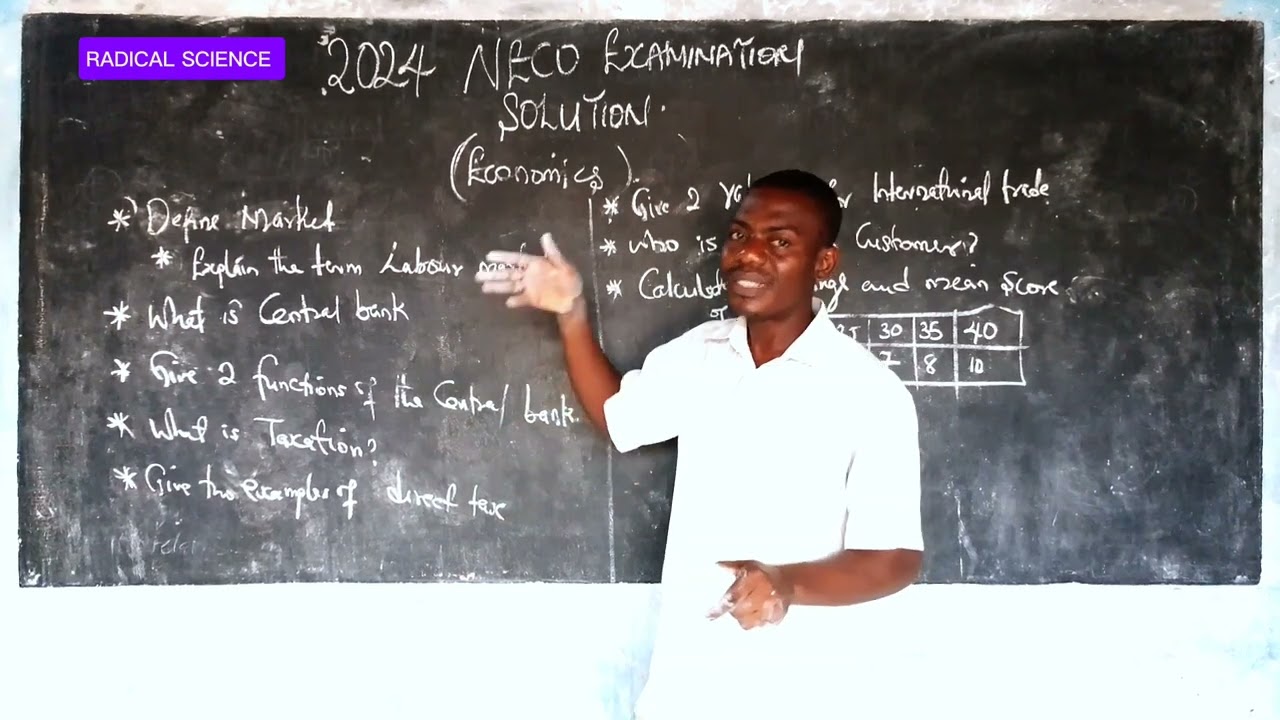 RADICAL SCIENCE
2024 NECO EXAMINATION
SOLUTION.
(Economics).
* Define Market
* Explain the term Labour
* What is Central bank
* Give 2 functions of the Central bank.
* What is Taxation?
* Give two examples of direct tax
* Give 2 for International trade
* who is Customer?
* Calculate and mean score
30 35 40
7 8 10